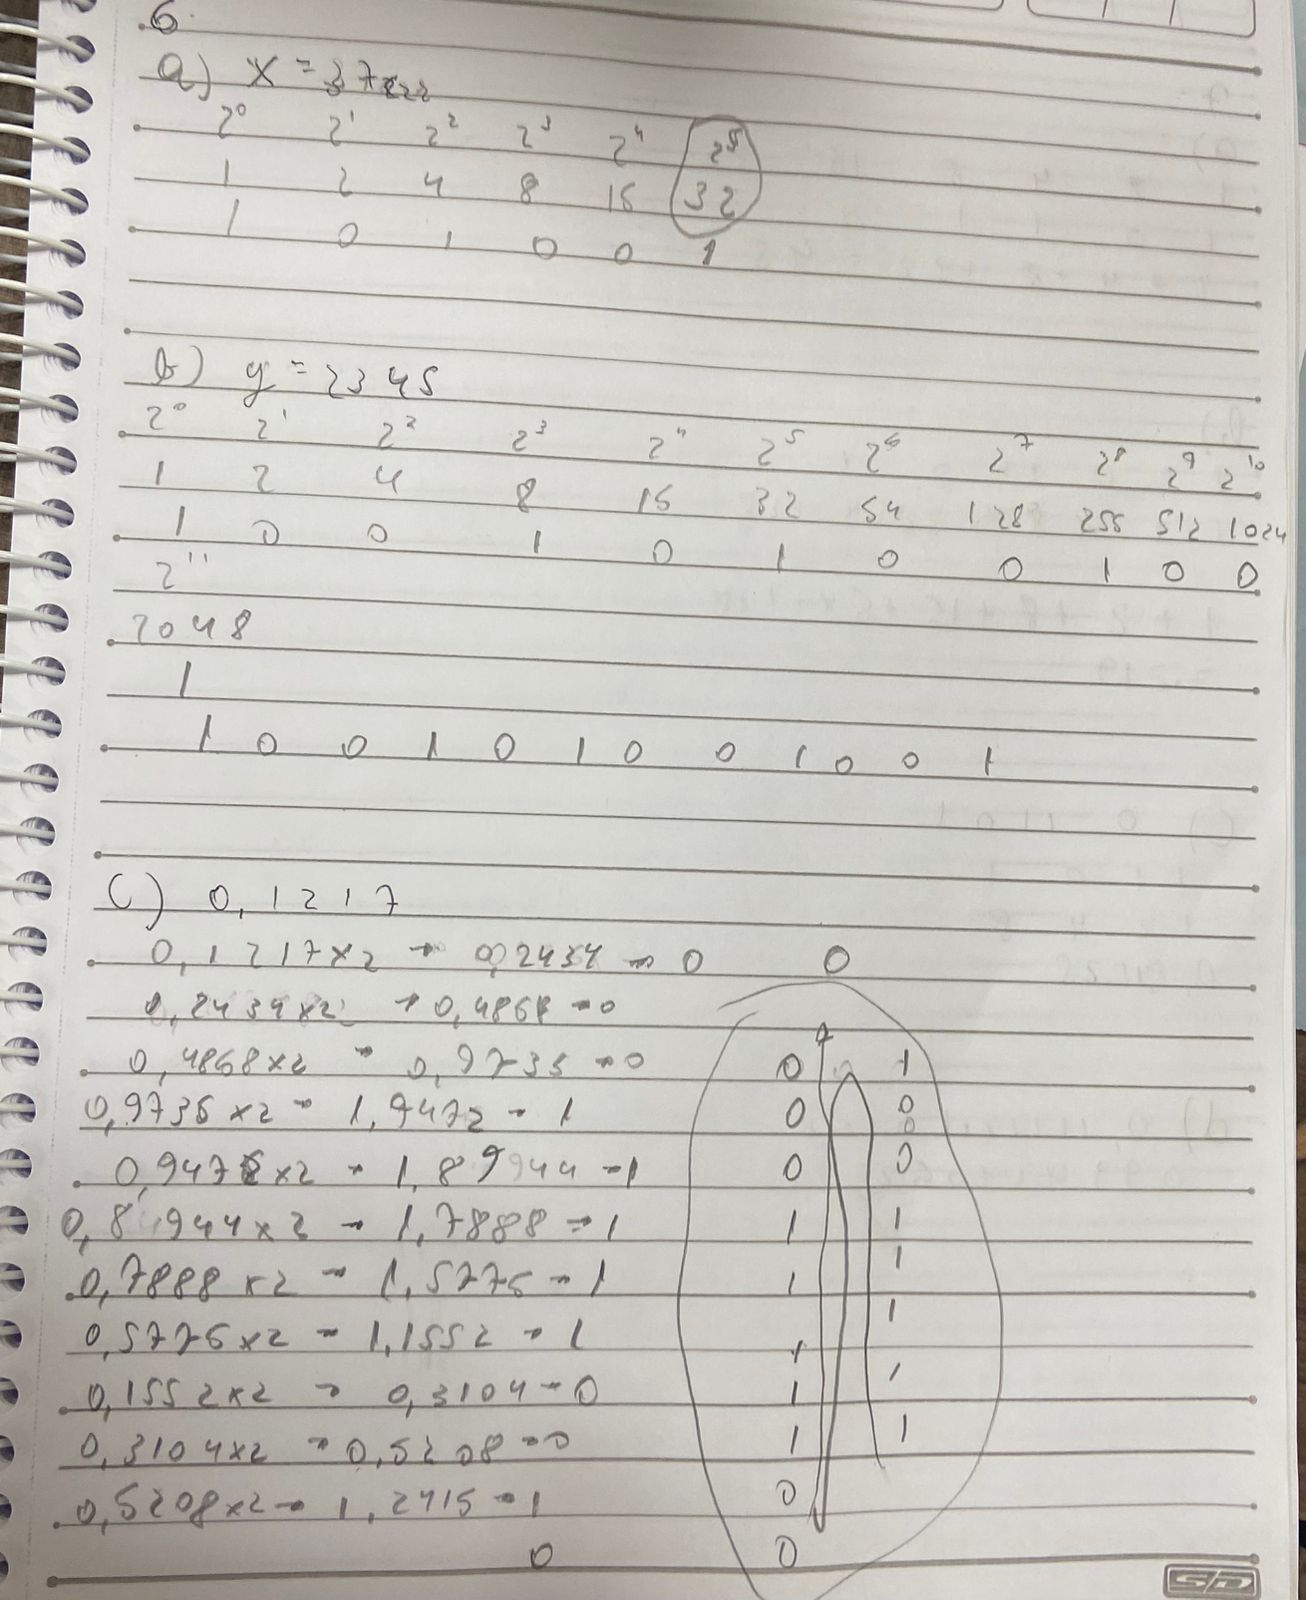 6
a) x = 37
2⁰ 2¹ 2² 2³ 2⁴ 2⁵
1 2 4 8 16 32
1 0 1 0 0 1
b) y = 2345
2⁰ 2¹ 2² 2³ 2⁴ 2⁵ 2⁶ 2⁷ 2⁸ 2⁹ 2¹⁰
1 2 4 8 16 32 64 128 256 512 1024
1 0 0 1 0 1 0 0 1 0 0
2¹¹
2048
1
1 0 0 1 0 1 0 0 1 0 0 1
c) 0,1217
0,1217x2 → 0,2434 → 0 0
0,2434x2 → 0,4868 → 0
0,4868x2 → 0,9736 → 0 0 1
0,9736x2 → 1,9472 - 1 0 0
0
0,9472x2 → 1,89944 → 1 0 0
0,8944x2 → 1,7888 → 1 1 1
0,7888x2 → 1,5776 → 1 1 1
0,5776x2 → 1,1552 → 1 1 1
0,1552x2 → 0,3104 → 0 1 1
0,3104x2 → 0,6208 → 0 1 1
0,6208x2 → 1,2416 → 1 0
0 0
SD